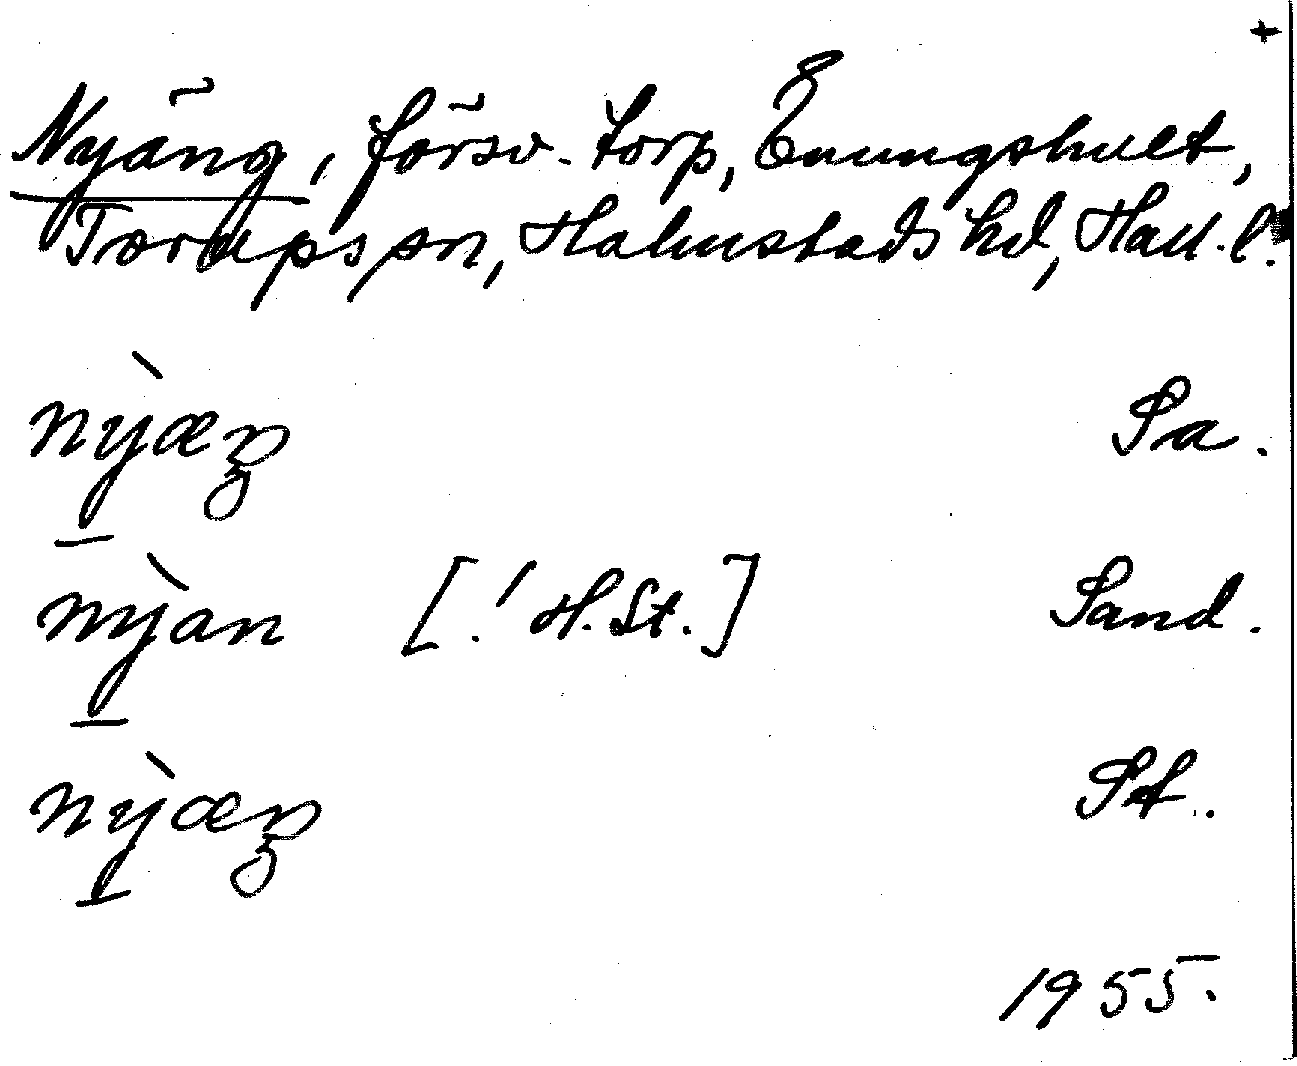 +
Nyäng, försv. torp, Enungshult,
Torups sn, Halmstads hd, Hall. l.
nỳæŋ Sa.
nỳan [! H. St.] Sand.
nỳæŋ St.
1955.